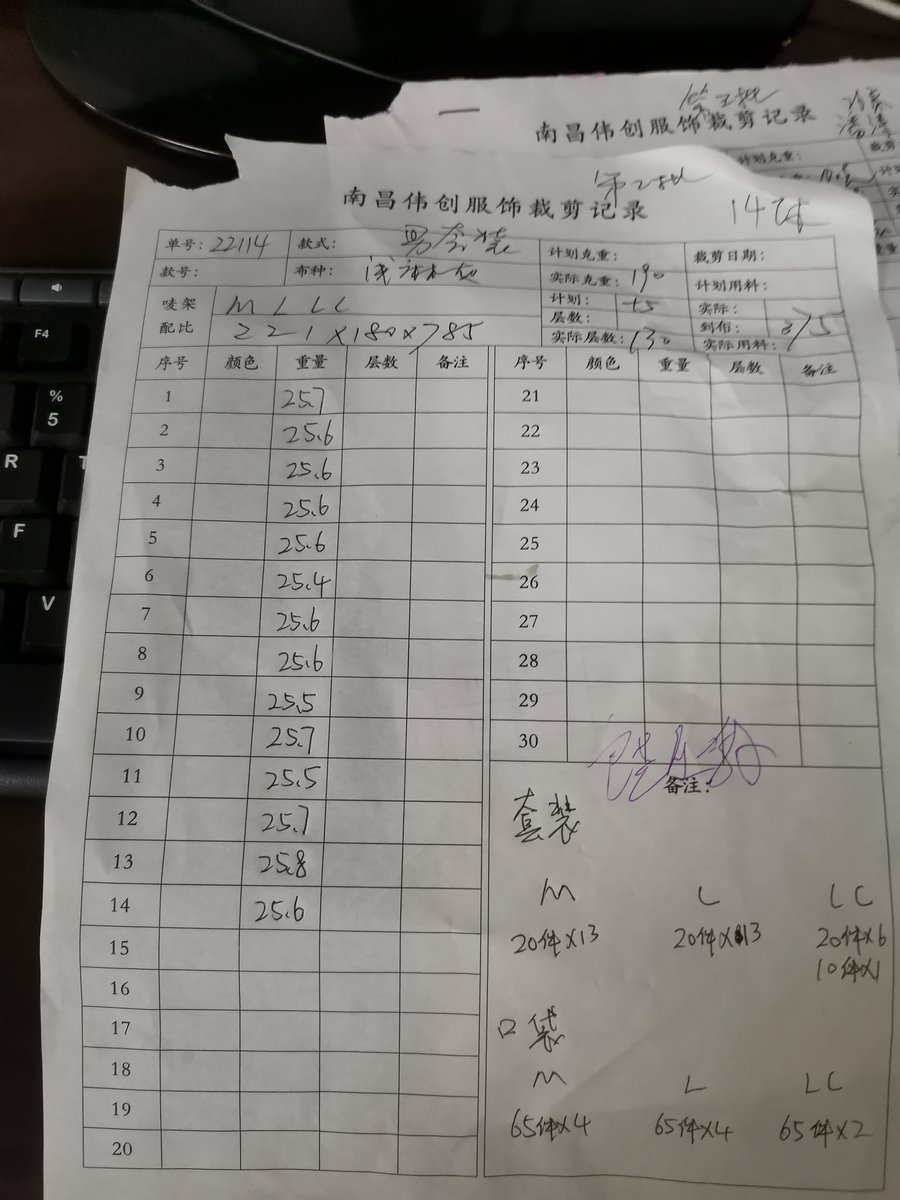 南昌伟创服饰裁剪记录
计划克重:
裁剪
南昌伟创服饰裁剪记录
第2批
14匹
单号: 22114 款式: 男套装 计划克重: 裁剪日期:
款号: 布种: 实际克重: 190 计划用料:
唛架 M L LL 计划: 实际:
配比 2 2 1 ×180×785 层数: 到布: 375
实际层数: 130 实际用料:
序号 颜色 重量 层数 备注 序号 颜色 重量 层数 备注
1 25.7 21
2 25.6 22
3 25.6 23
4 25.6 24
5 25.6 25
6 25.4 26
7 25.6 27
8 25.6 28
9 25.5 29
10 25.7 30
11 25.5 备注:
12 25.7 套装
13 25.8
14 25.6 M L LL
15 20件×13 20件×13 20件×6
16 10件×1
17 口袋
18 M L LL
19 65件×4 65件×4 65件×2
20
F4
%
5
R
T
F
V